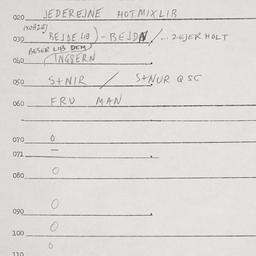 020 JEDEREJNE HOTMIXLIB
030 BEJDE LIB) - BEJDN / ... ZEJER HOLT
BESER LIB DEM
040 INGBERN
050 S+NIR / S+NUR QSG
060 FRU MAN
070 0
071 —
080 0
090 0
100 0
0
110